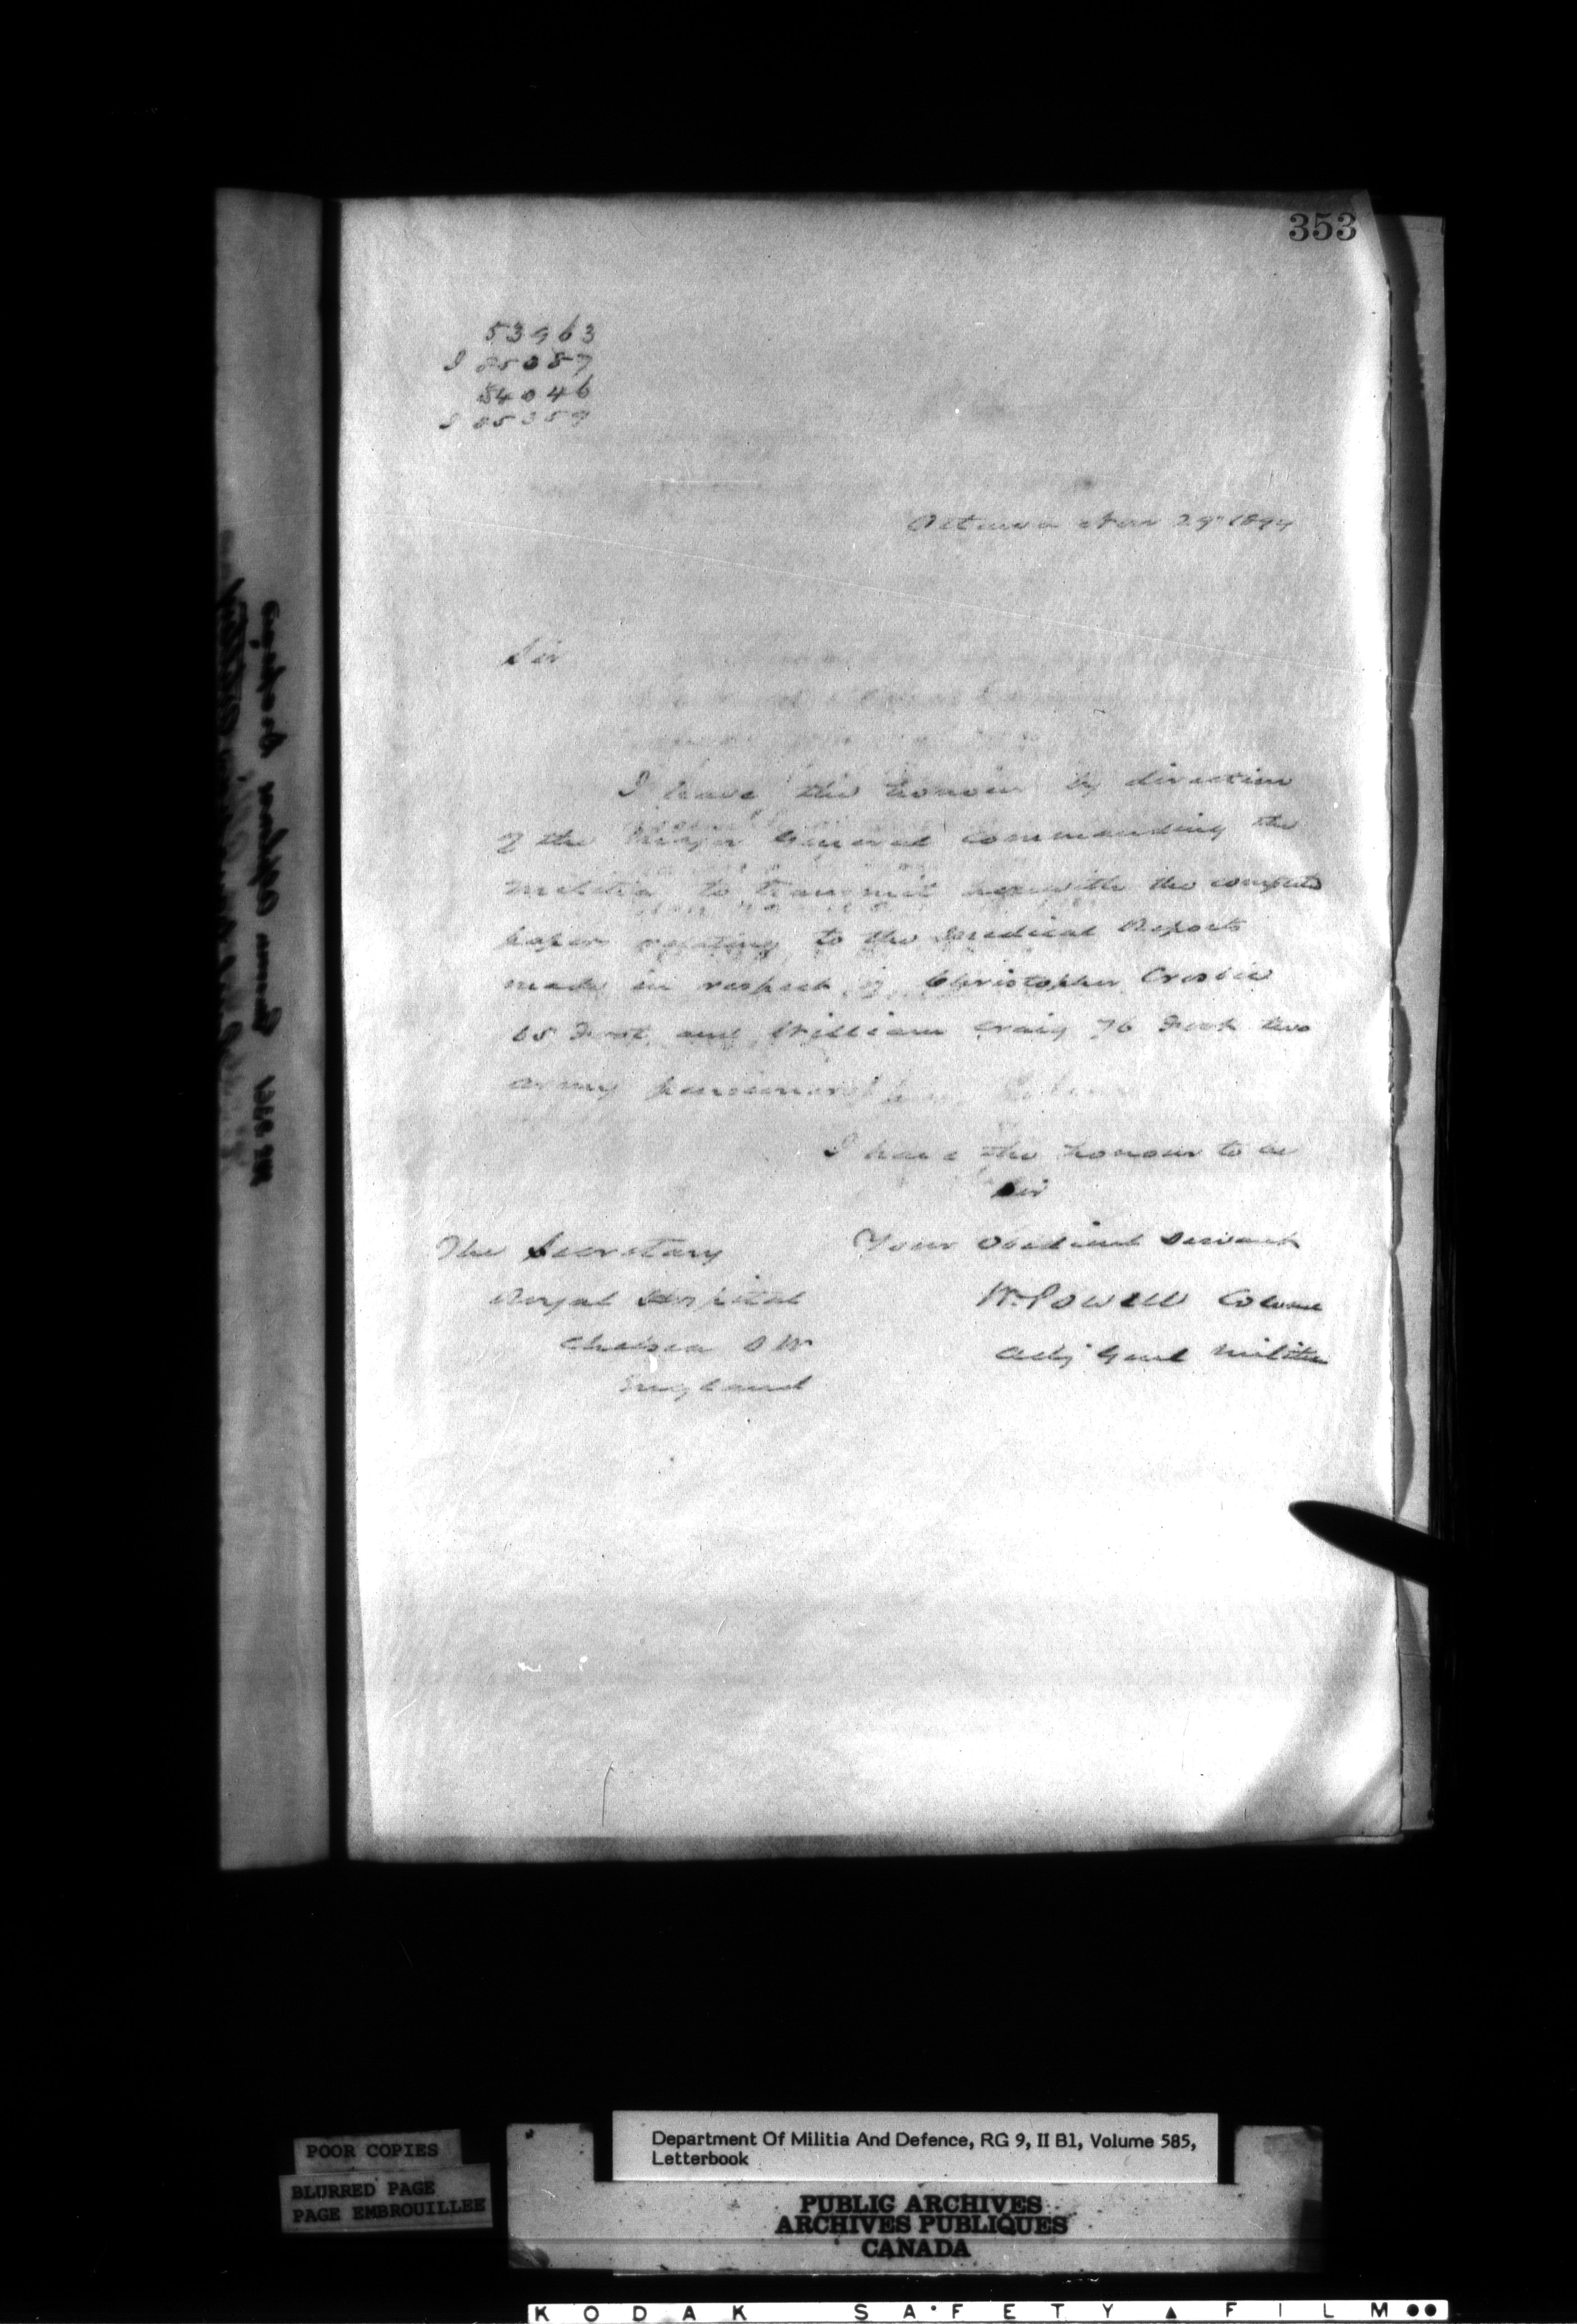 353
53963
54046
Ottawa Nov 29 1894
Sir
I have the honour by direction
of the Major General Commanding the
Militia to transmit herewith the
papers relating to the Medical Reports
made in respect of Christopher
65 Foot and William Craig 76 Foot two
army pensioners
I have the honour to be
Sir
Your Obedient Servant
W. Powell Colonel
Adj Genl Militia
The Secretary
Royal Hospital
Chelsea S W
England
POOR COPIES
BLURRED PAGE
PAGE EMBROUILLEE
Department Of Militia And Defence, RG 9, II B1, Volume 585,
Letterbook
PUBLIC ARCHIVES
ARCHIVES PUBLIQUES
CANADA
KODAK SAFETY ▲ FILM